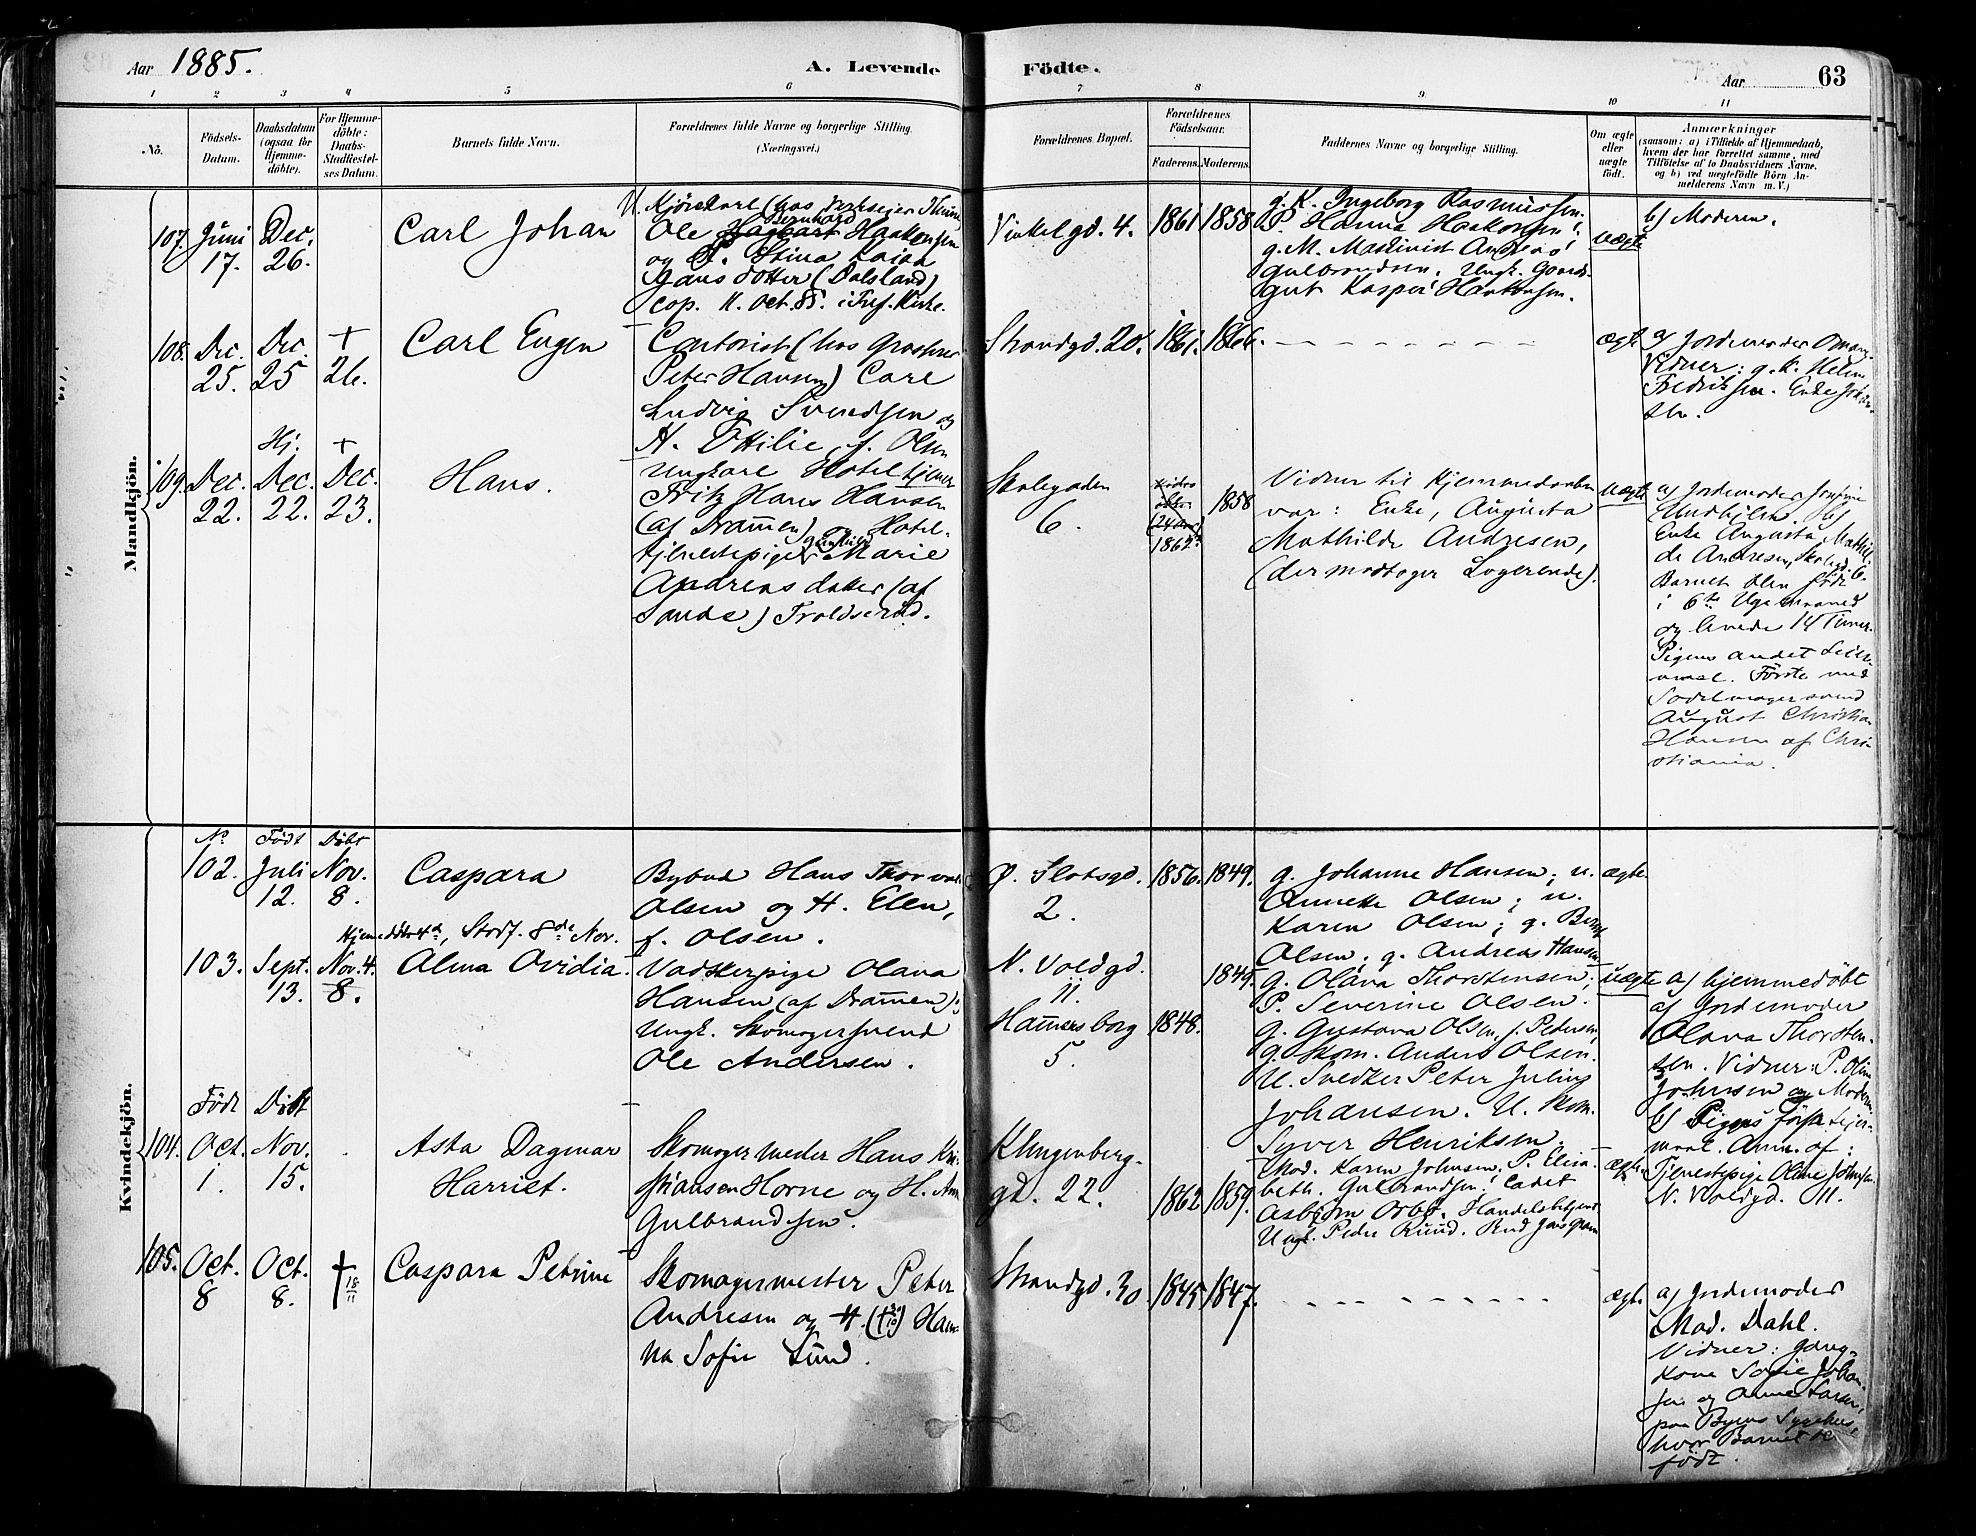 Aar 1885.
A. Levende Födte.
Aar 63
1 2 3 4 5 6 7 8 9 10 11
No.
Födsels-
Datum.
Daabsdatum
(ogsaa for
Hjemme-
döbte).
For Hjemme-
döbte:
Daabs-
Stadfæstel-
ses Datum.
Barnets fulde Navn.
Forældrenes fulde Navne og borgerlige Stilling.
(Næringsvei.)
Forældrenes Bopæl.
Forældrenes
Födselsaar.
Faderens. Moderens.
Faddernes Navne og borgerlige Stilling.
Om ægte
eller
uægte
født.
Anmærkninger
(saasom: a) i Tilfælde af Hjemmedaab,
hvem der har forrettet samme, med
Tilföielse af to Daabsvidners Navne,
og b) ved uægtefödte Börn An-
melderens Navn m. V.)
Mandkjön.
107. Juni
17.
Dec.
26.
Carl Johan
U. Kjörekarl (hos
Bernhard
Ole Hagbart Haakensen
og P. Stina Kaisa
Jans dotter (Dalsland)
cop. 11. Oct. 85. i Kirke.
Vinkelgd. 4.
1861 1858
g. K. Ingeborg Rasmussen.
P. Hanna Haakensen;
g. M. Maskinist Anders
Gulbrandsen. Ungk. Gaards-
gut Kasper Haakensen.
uægt
b) Moderen.
108. Dec.
25.
Dec.
25
+
26.
Carl Eugen
Contorist (hos Grosserer
Peter Hansen) Carl
Ludvig Svendsen og
H. Ottilie f. Olsen
Strandgd. 20.
1861. 1866.
ægt.
a) Jordemoder
Vidner: g. k. Helene
Fredriksen. Enke
109. Dec.
22.
Hj.
Dec.
22.
+
Dec.
23.
Hans.
Ungkarl Hoteltjener
Fritz Hans Hansen
(af Drammen) og Hotel-
tjenestepige Marie
Andreas datter (af
Sande) Troldserud.
Skolegaden
6.
1862
1858
Vidner til Hjemmedaaben
var: Enke, Augusta
Mathilde Andresen,
(der modtager Logerende).
uægte
a) Jordemoder Josefine
b)
Enke Augusta Mathil-
de Andresen, Skolegd. 6.
Barnet blev født
i 6te Ugemaaned
og levede 14 Timer.
Pigens andet Leier-
maal. Første med
Sadelmagersvend
August Christian
Hansen af Chri-
stiania.
Kvindekjön.
No Født Döbt
102. Juli
12.
Nov.
8.
Caspara
Bybud Hans Thorvald
Olsen og H. Elen,
f. Olsen.
Ø. Slotsgd.
2.
1856. 1849.
g. Johanne Hansen; u.
Annette Olsen; u.
Karen Olsen; g. Bernt
Olsen; g. Andreas Hansen
ægte
Hjemmedöbt 4d, Stadf. 8de Nov.
103. Sept.
13.
Nov. 4.
8.
Alma Ovidia.
Vadskerpige Olava
Hansen (af Drammen);
Ungk. Skomagersvend
Ole Andersen.
N. Voldgd.
11.
Hammersborg
5
1848.
1849.
g. Olava Thorstensen;
P. Severine Olsen.
g. Gustava Olsen, f. Pedersen,
g. Skom. Anders Olsen.
U. Snedker Peter Julius
Johansen. U. Skom.
Syver Henriksen.
uægte
a) hjemmedöbt
af Jordemoder
Olava Thorsten-
sen. Vidner: P. Oline
Johnsen og Moderen
b) Pigens første Leier-
maal. Anm. af:
Tjenestepige Oline Johnsen
N. Voldgd. 11.
Født Döbt
104. Oct.
1.
Nov.
15.
Asta Dagmar
Harriet.
Skomagermester Hans Kri-
stiansen Horne og H. Ana
Gulbrandsen.
Klingenberg-
gd. 22.
1862 1859.
Mad. Karen Johnsen. P. Elisa-
beth. Gulbrandsen. Cadet
Asbjørn Orbe. Handelsbetjent
Ungk. Peder Ruud.
ægte
105. Oct.
8
Oct.
8.
† 18/11
Caspara Petrine
Skomagermester Peter
Andresen og H. († 30/10) Han-
na Sofie Lund.
Strandgd. 30
1845 1847.
ægte
a) Jordemoder
Mad. Dahl.
Vidner: Gang-
kone Sofie Johan-
sen og Anne Larsen,
paa Byens Sygehus,
hvor Barnet er
født.